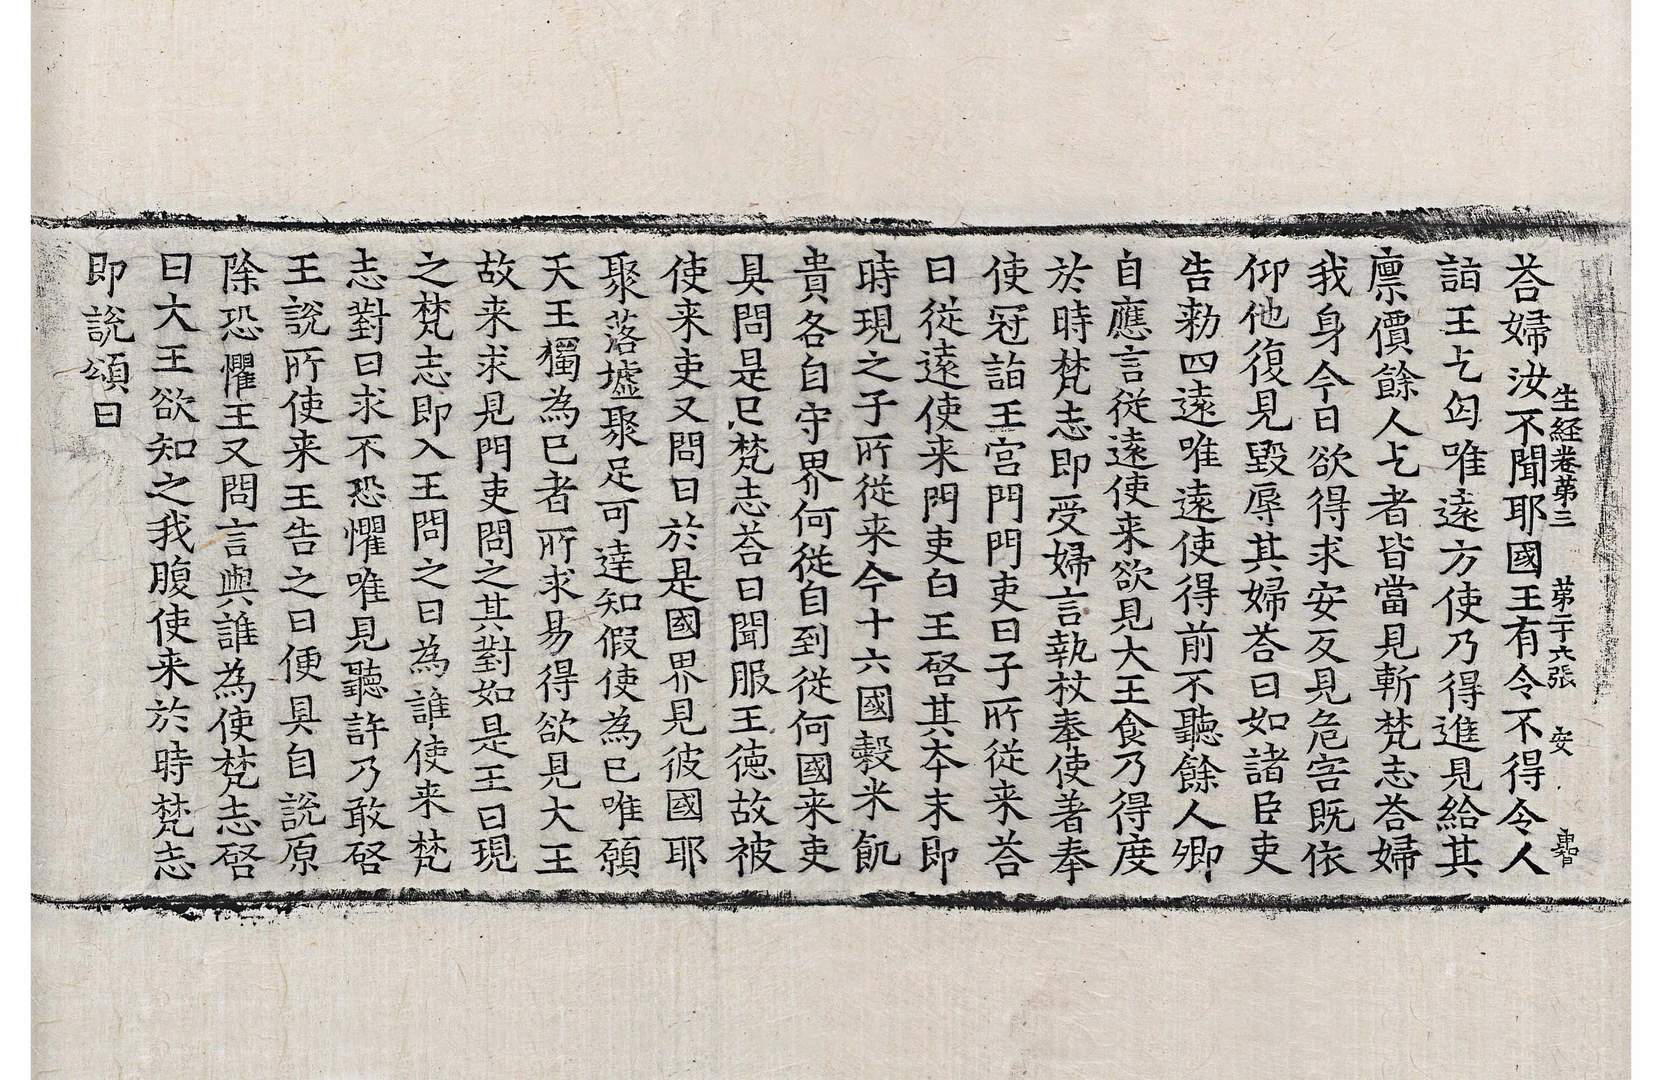 生経卷第三　第二十六張　安　專智
荅婦汝不聞耶國王有令不得令人
詣王乞匃唯遠方使乃得進見給其
廪價餘人乞者皆當見斬梵志荅婦
我身今日欲得求安反見危害既依
仰他復見毀辱其婦荅曰如諸臣吏
告勑四遠唯遠使得前不聽餘人卿
自應言従遠使来欲見大王食乃得度
於時梵志即受婦言執杖奉使著奉
使冠詣王宫門門吏曰子所従来荅
曰従遠使来門吏白王啓其夲末即
時現之子所従来今十六國穀米飢
貴各自守界何従自到従何國来吏
具問是已梵志荅曰聞服王徳故被
使来吏又問曰於是國界見彼國耶
聚落墟聚足可達知假使為已唯願
天王獨為已者所求易得欲見大王
故来求見門吏問之其對如是王曰現
之梵志即入王問之曰為誰使来梵
志對曰求不恐懼唯見聽許乃敢啓
王說所使来王告之曰便具自說原
除恐懼王又問言與誰為使梵志啓
曰大王欲知之我腹使来於時梵志
即說頌曰